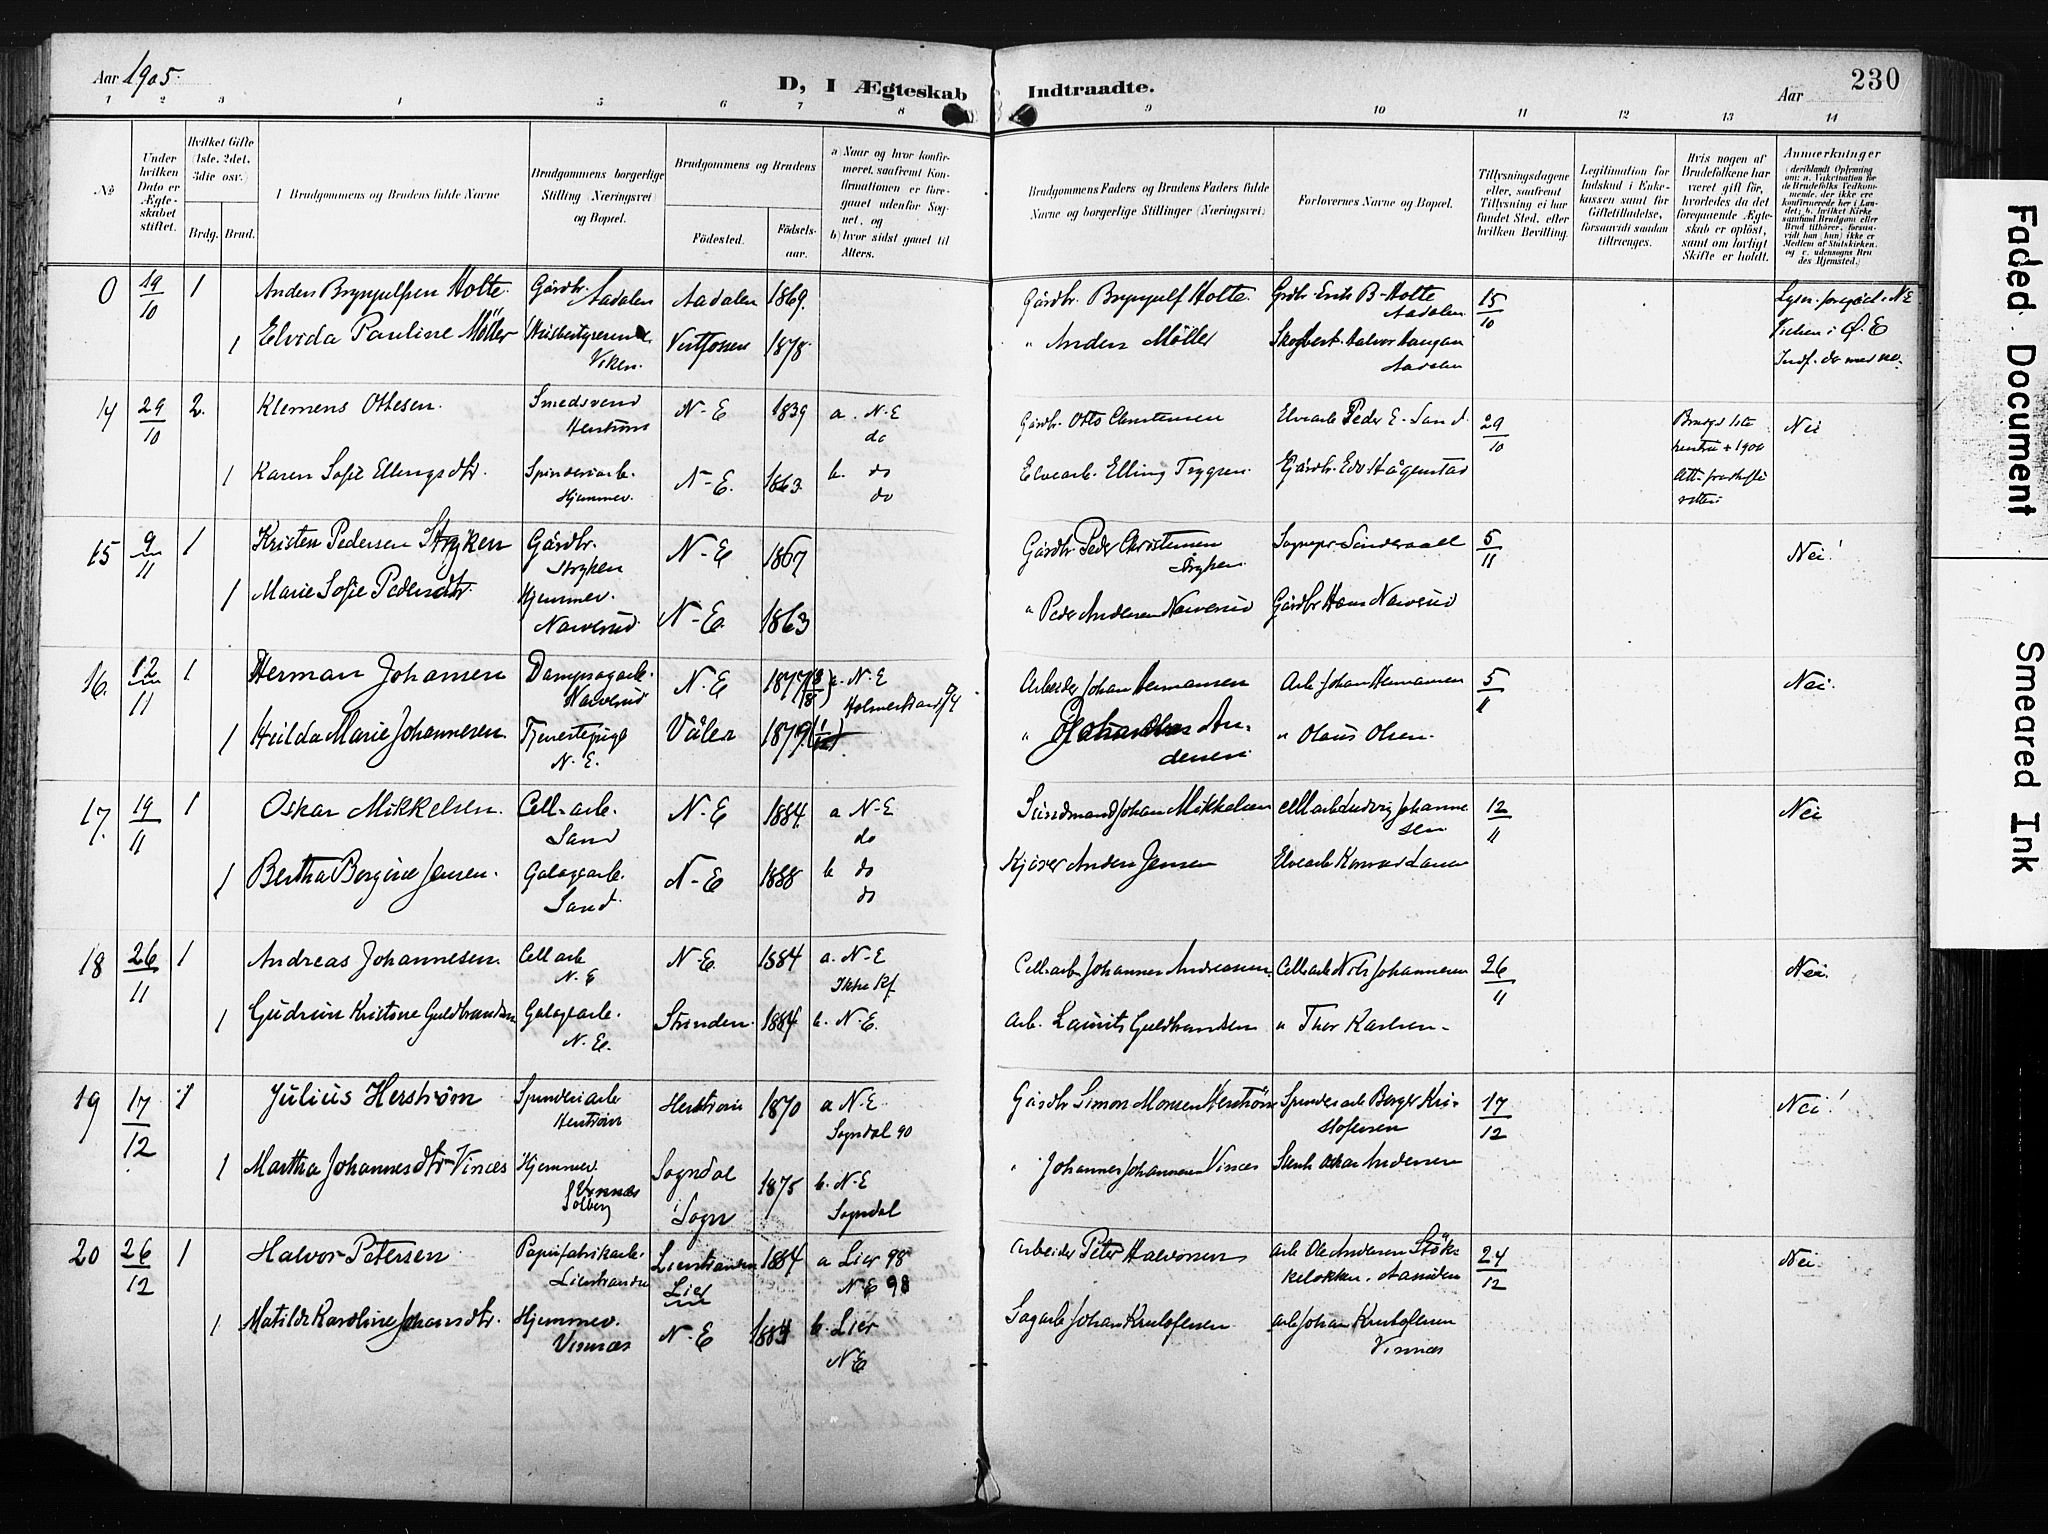 Aar 1905.
D, I Ægteskab Indtraadte.
Aar
230
1 2 3 4 5 6 7 8 9 10 11 12 13 14
№
Under hvilken Dato er Ægteskabet stiftet.
Hvilket Gifte (1ste, 2det, 3die osv.)
Brdg. Brud.
I Brudgommens og Brudens fulde Navne
Brudgommens borgerlige Stilling (Næringsvei) og Bopæl.
Brudgommens og Brudens
Födested.
Födselsaar.
a) Naar og hvor konfirmeret, saafremt Konfirmationen er foregaaet udenfor Sognet, og
b) hvor sidst gaaet til Alters.
Brudgommens Faders og Brudens Faders fulde Navne og borgerlige Stillinger (Næringsvei)
Forlovernes Navne og Bopæl.
Tillysningsdagene eller, saafremt Tillysning ei har fundet Sted, efter hvilken Bevilling.
Legitimation for Indskud i Enkekassen samt for Giftetilladelse, forsaavidt saadan tiltrænges.
Hvis nogen af Brudefolkene har været gift för, hvorledes da det foregaaende Ægteskab er oplöst, samt om lovligt Skifte er holdt.
Anmærkninger
0 19/10 1 Anders Brynjulfsen Holte. Gårdbr. Aadalen Aadalen 1869. Gårdbr. Brynjulf Holte. Grdbr. Erik B. Holte Aadalen 15/10
1 Elvida Pauline Möller Husbestyrerinde Viken. Vestfossen 1878. " Anders Möller
Aadalen
14 29/10 2. Klemens Ottesen. Smedsvend Herstrøm N-E 1839 a. N-E do Gårdbr. Otto Christensen Elvearb Peder E. Sand 29/10 Nei
1 Karen Sofie Ellingsdtr. Spinderiarb. Hjemmev. N-E. 1863. b. do do Elvearb. Elling Trygsen.
15 9/11 1 Kristen Pedersen Stryken Gårdbr. Stryken N-E 1867 Gårdbr Peder Christensen Stryken 5/11 Nei!
1 Marie Sofie Pedersdtr. Hjemmev. Narverud N-E. 1863 " Peder Andersen Narverud Gårdbr Hans Narverud
16. 12/11 1 Herman Johansen Dampsagarb. Narverud N-E 1877 a. N-E Arbeider Johan Hermansen Arb. Johan Hermansen 5/11 Nei.
1 Hilda Marie Johannesen. Tjenestepige N. E. Våler 1879 " Andersen " Olaus Olsen.
17. 19/11 1 Oskar Mikkelsen. Cell-arb. Sand N-E 1884. a N-E do Johan Mikkelsen Cell arb Ludvig Johannesen 12/11 Nei
1 Bertha Borgine Jensen. Galagearb. Sand. N-E 1888 b do do Kjører Anders Jensen Elvearb Konrad Larsen
18 26/11 1 Andreas Johannesen. Cell arb N.E N-E. 1884 a. N-E Ikke kf. Cell-arb Johannes Andreasen. Cell arb Nils Johannesen 26/11 Nei.
1 Gudrun Kristine Guldbrandsen Galagearb. N. E. Strinden. 1884 b. N. E. Arb. Laurits Guldbrandsen " Thor Karlsen.
19 17/12 1 Julius Herstrøm Spinderiarb Herstrøm Herstrøm 1870 a N-E Sogndal 90 Gårdbr Simon Monsen Herstrøm Spinderiarb Borger Kristofersen 17/12 Nei!
1 Martha Johannesdtr Vinæs Hjemmev. Vinnæs Solberg Sogndal i Sogn 1875 b. N-E Sogndal " Johannes Johannesen Vinæs Andersen
20 26/12 1 Halvor Petersen Papirfabrikarb. Lierstranden Lierstranden Lier 1884 a Lier 98 N-E 98 Arbeider Peter Halvorsen Arb Ole Andersen Stökkeløkken. 24/12 Nei.
1 Matilde Karoline Johansdtr. Hjemmev. Vinnæs N-E b. Lier N-E Sagarb Johan Kristofersen Arb Johan Kristofersen Vinnæs
Faded Document
Smeared Ink